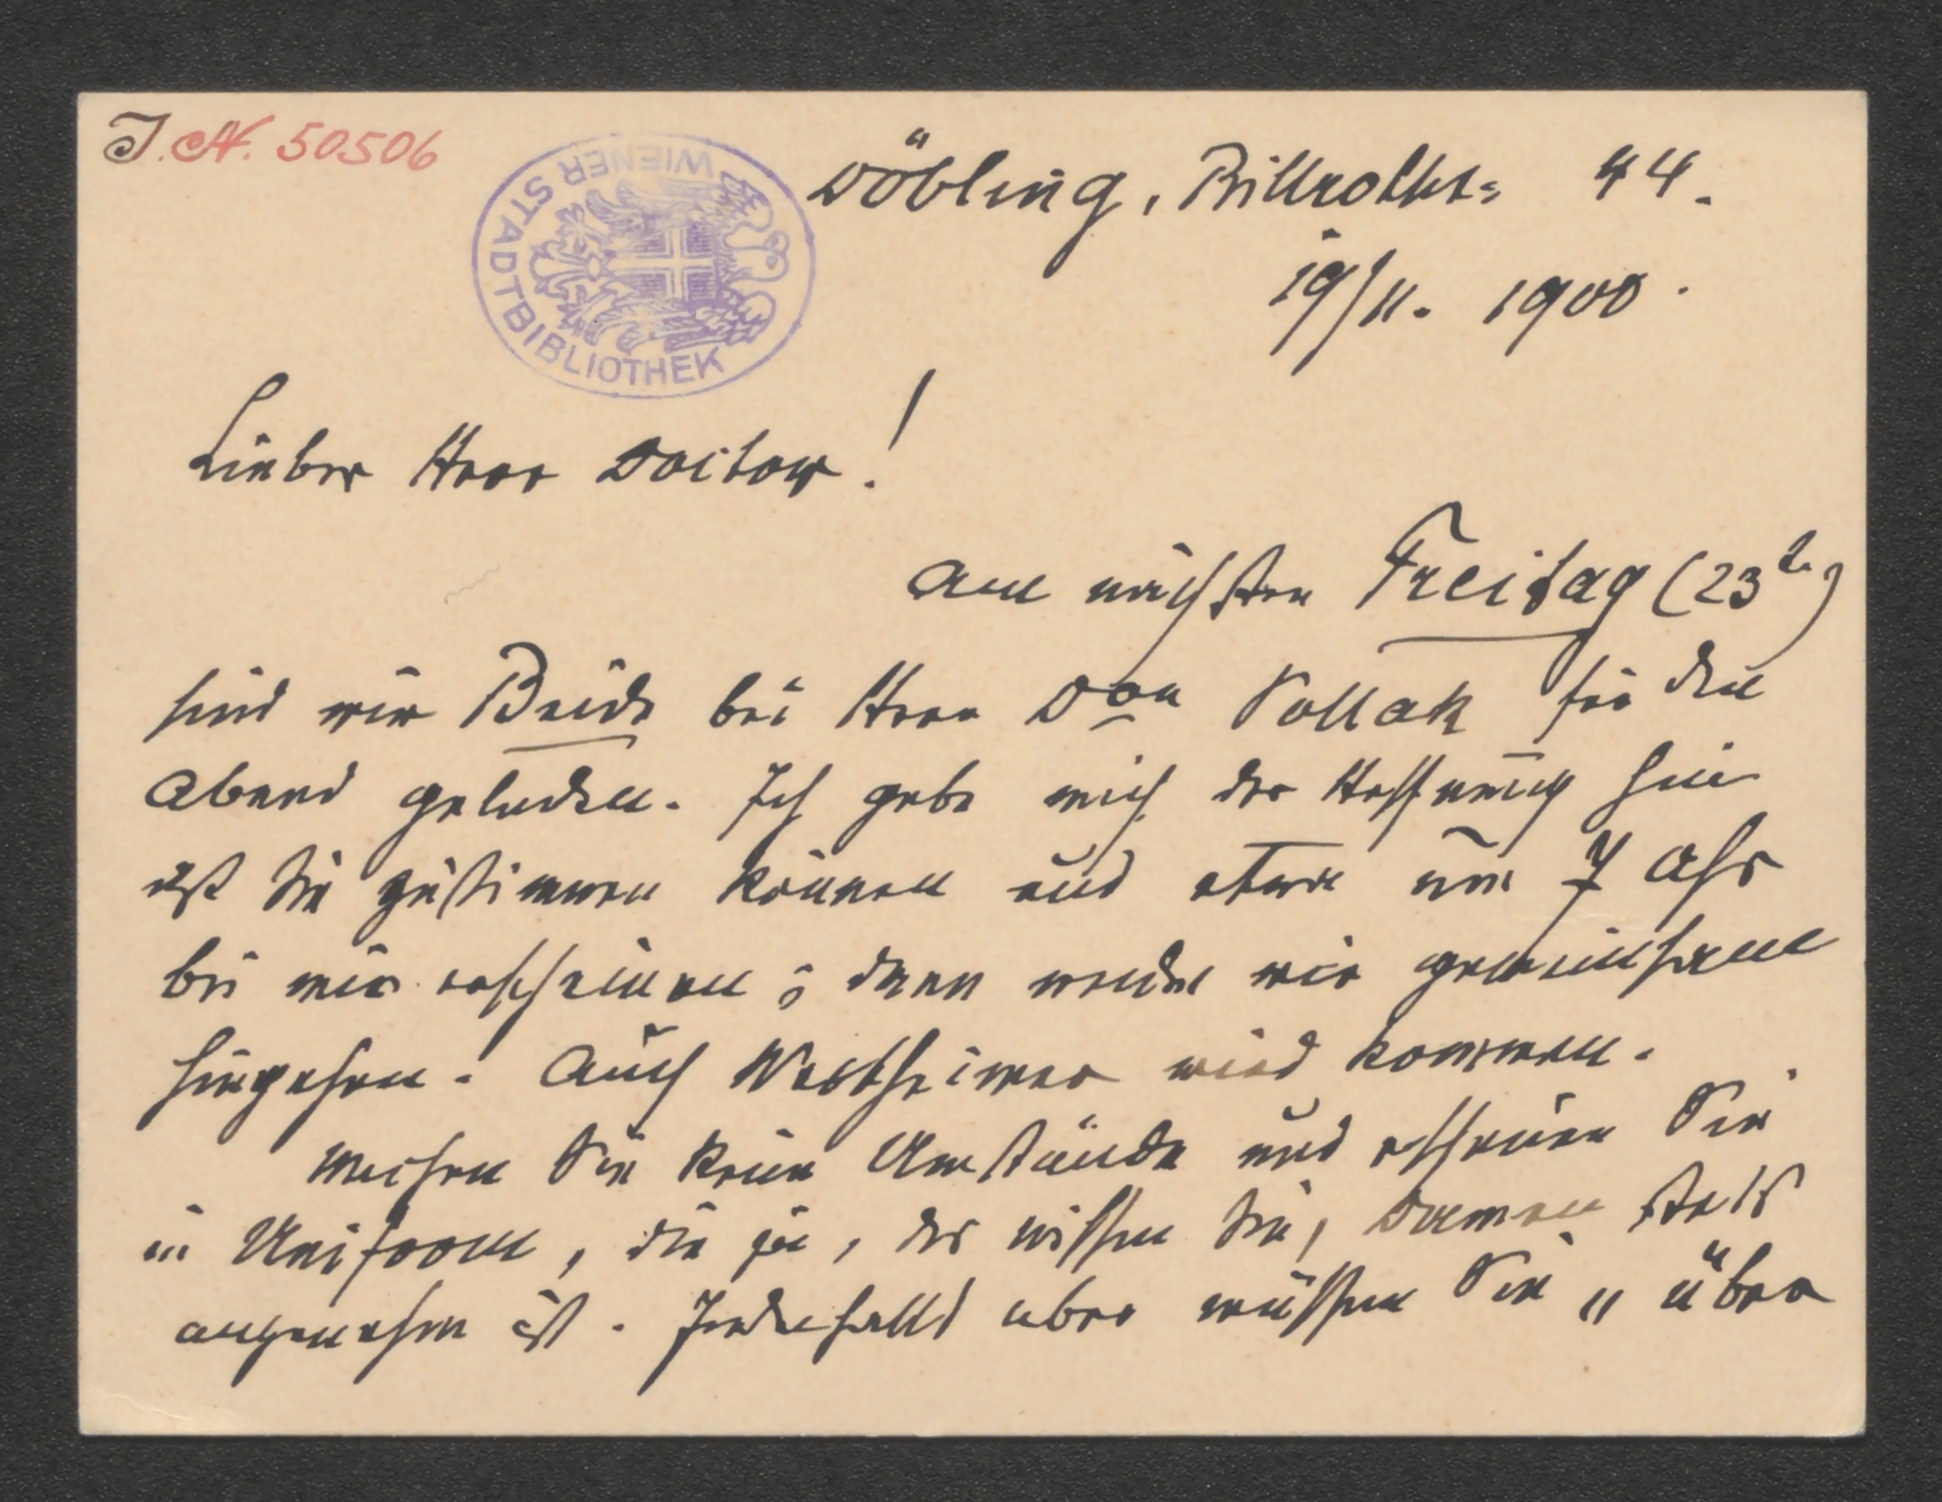 J. N. 50506
WIENER STADTBIBLIOTHEK
Döbling, Billrothst= 44.
19/11. 1900.
Lieber Herr Doctor!
Am nächsten Freitag (23t.)
sind wir Beide bei Herrn Don Pollak für den
Abend geladen. Ich gebe mich der Hoffnung hin
daß Sie zustimmen können und etwa um 7 Uhr
bei mir erscheinen; dann werden wir gemeinsam
hingehen. Auch Wertheimer wird kommen.
Machen Sie keine Umstände und erscheinen Sie
in Uniform, die ja, das wissen Sie, Damen stets
angenehm ist. Jedenfalls aber müssen Sie „über